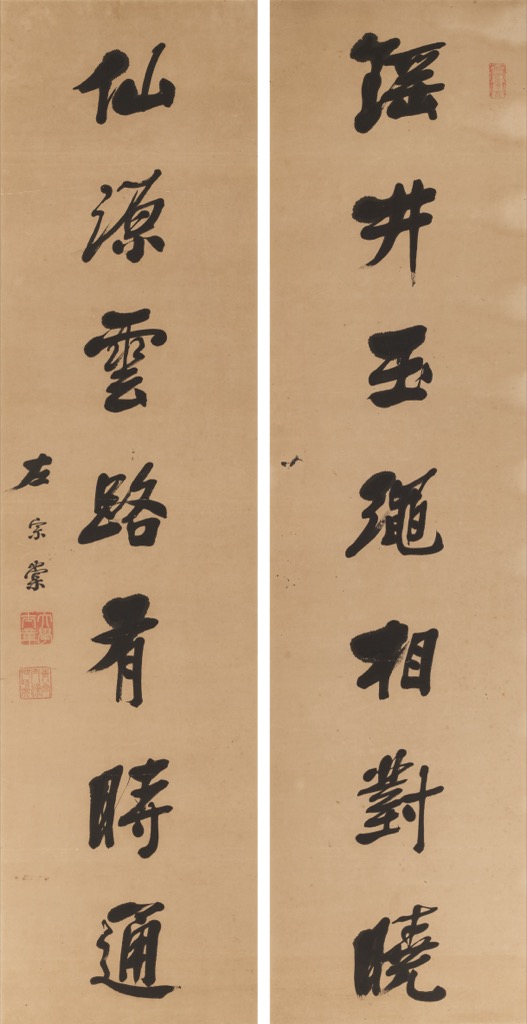 瑤井玉繩相對曉
仙源雲路有時通
左宗棠